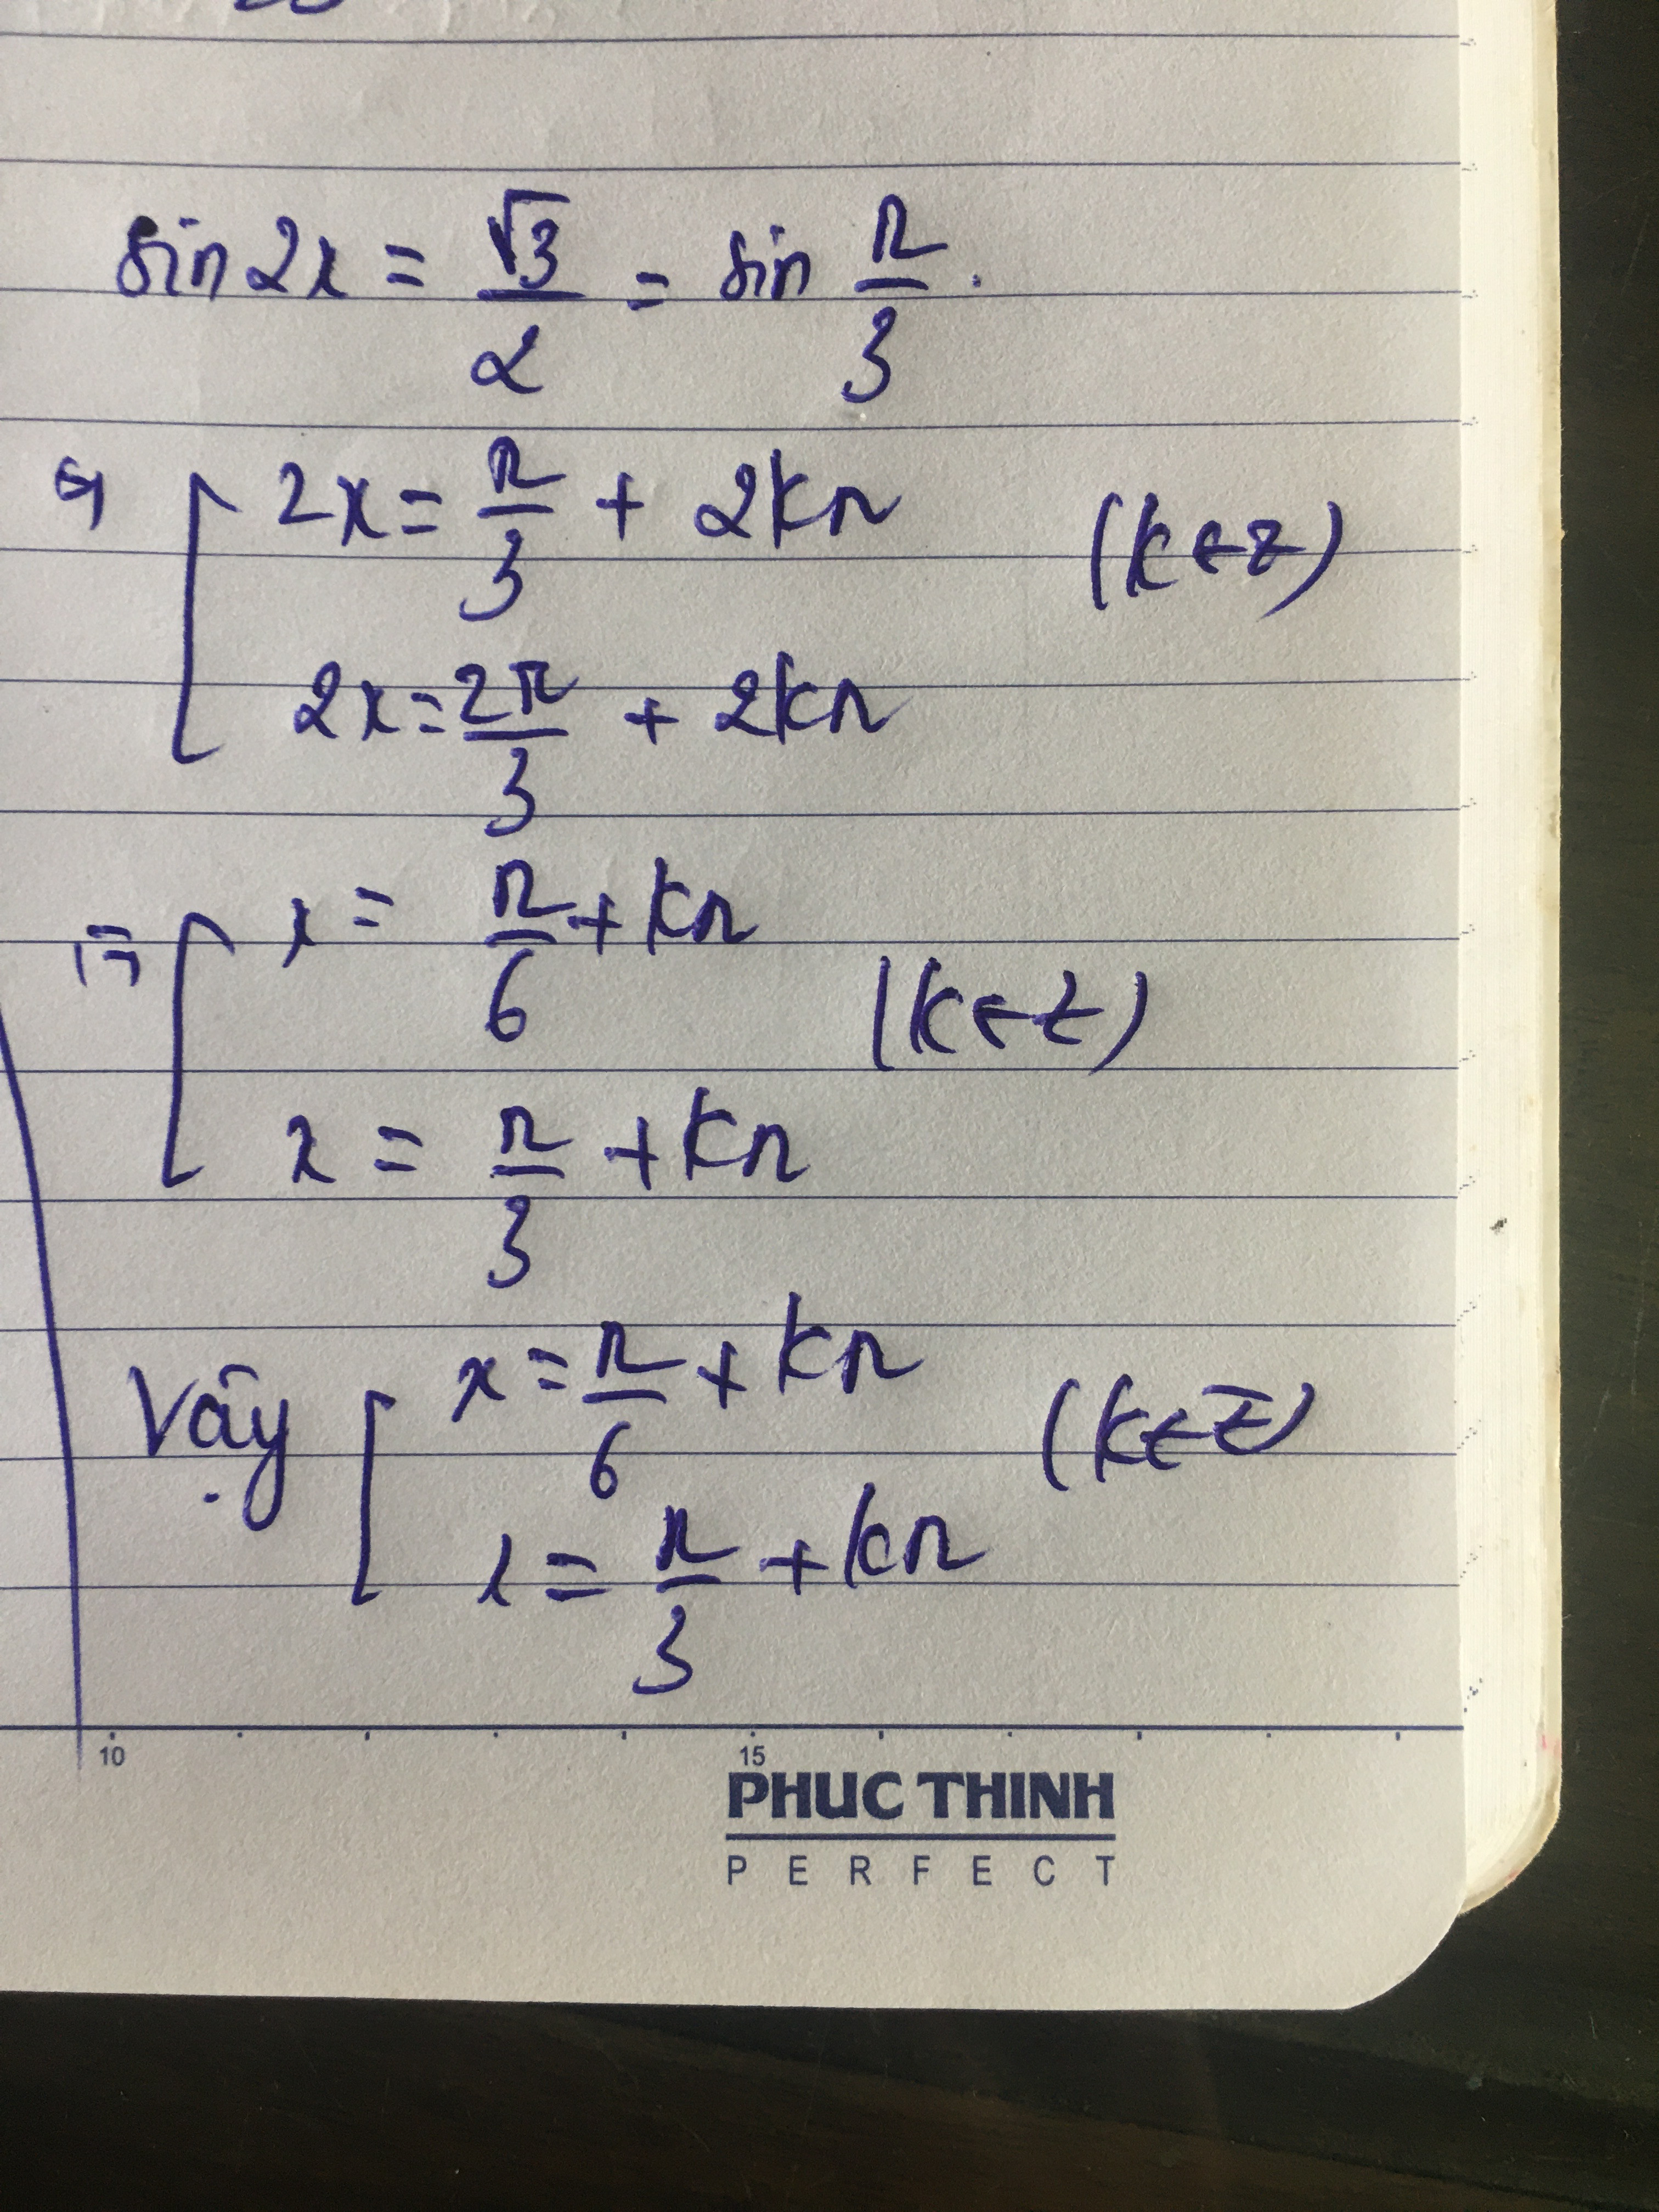 sin 2x = √3/2 = sin π/3.
⇔ [ 2x = π/3 + 2kπ (k ∈ Z)
2x = 2π/3 + 2kπ
⇔ [ x = π/6 + kπ (k ∈ Z)
x = π/3 + kπ
Vậy [ x = π/6 + kπ (k ∈ Z)
x = π/3 + kπ
10 15
PHUC THINH
PERFECT